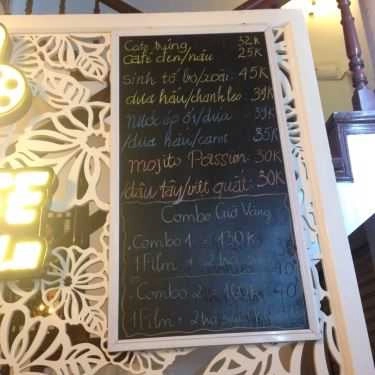 Cafe trứng 32K
Cafe đen/nâu 25K
sinh tố bơ/xoài 45K
dưa hấu/chanh leo 39K
nước ép ổi/dứa 39K
dưa hấu/carot 35K
mojito Passion 30K
dâu tây/việt quất 30K
Combo Giờ Vàng
Combo 1 = 130K
1 Film + 2
Combo 2 = K
1 Film +